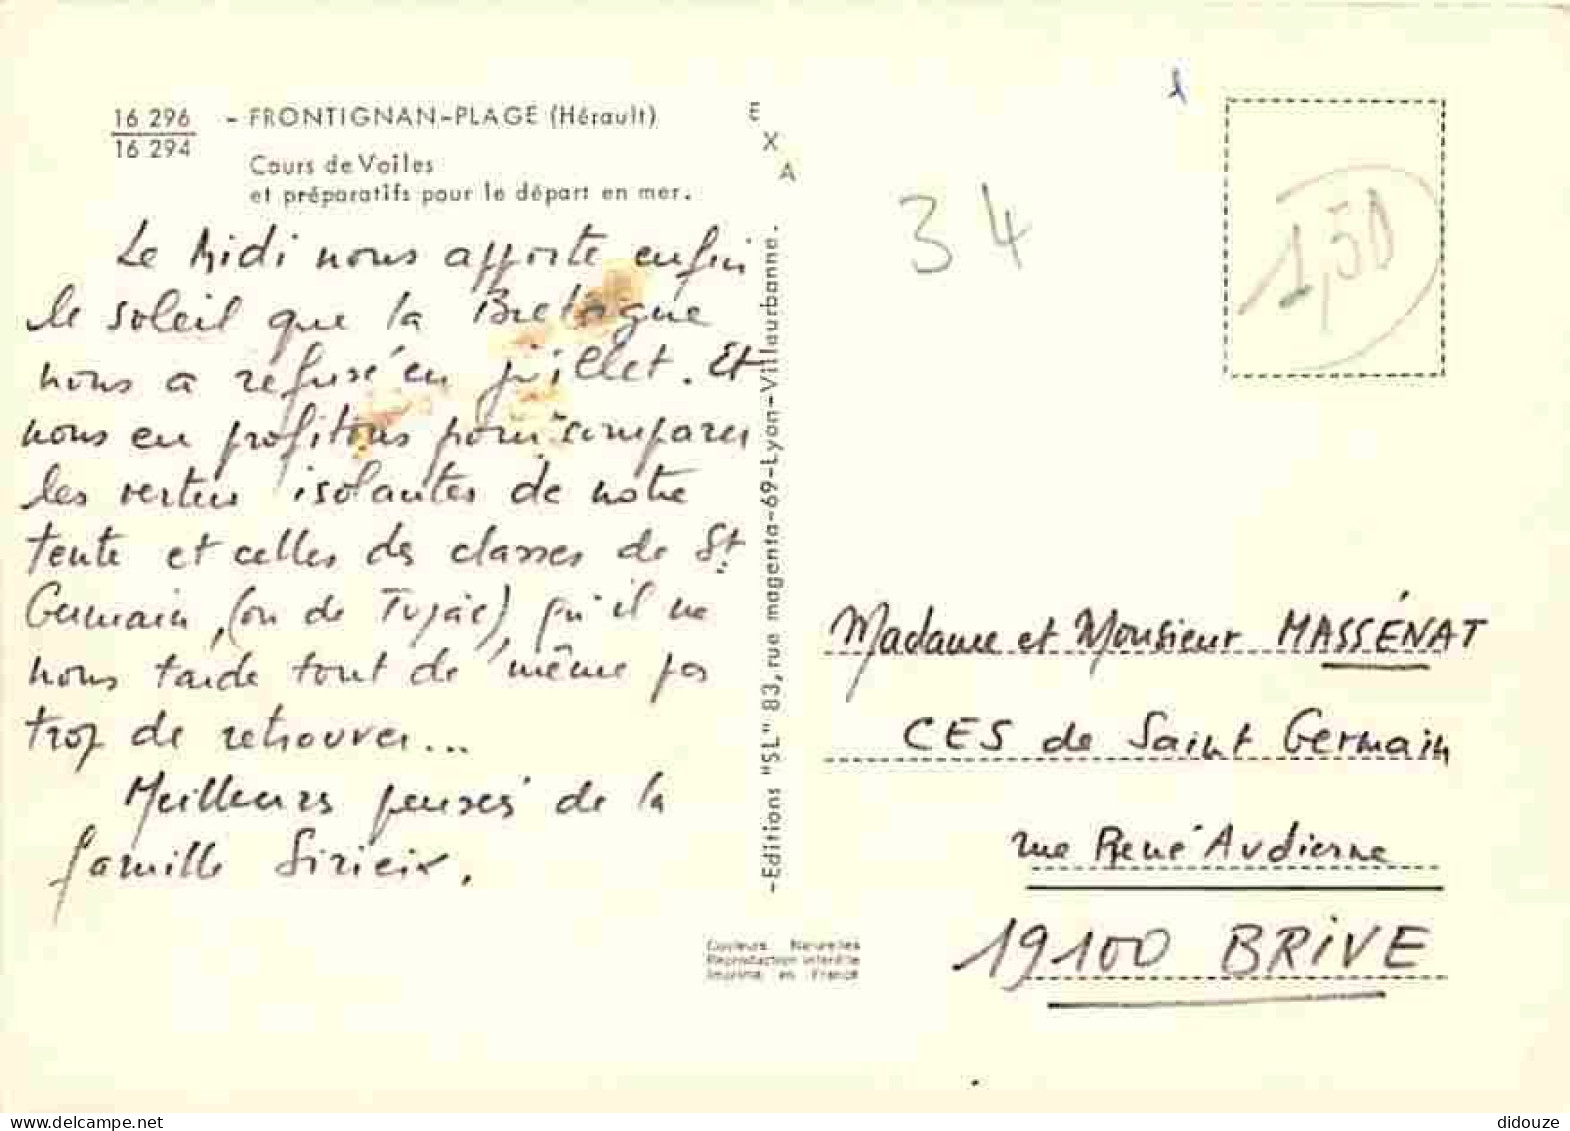 16 296 - FRONTIGNAN-PLAGE (Hérault)
16 294
Cours de Voiles
et préparatifs pour le départ en mer.
Le Midi nous apporte enfin
le soleil que la Bretagne
nous a refusé en juillet. Et
nous en profitons pour comparer
les vertus isolantes de notre
tente et celles des classes de St
Germain, (ou de Tujac), qu'il ne
nous tarde tout de même pas
trop de retrouver...
Meilleures pensées de la
famille Sirieix.
EXA
-Editions "SL" 83, rue magenta-69-Lyon-Villeurbanne.
Couleurs Naturelles
Reproduction interdite
Imprimé en France
34
1,50
Madame et Monsieur MASSÉNAT
CES de Saint Germain
rue René Audierne
19100 BRIVE
delcampe.net
didouze